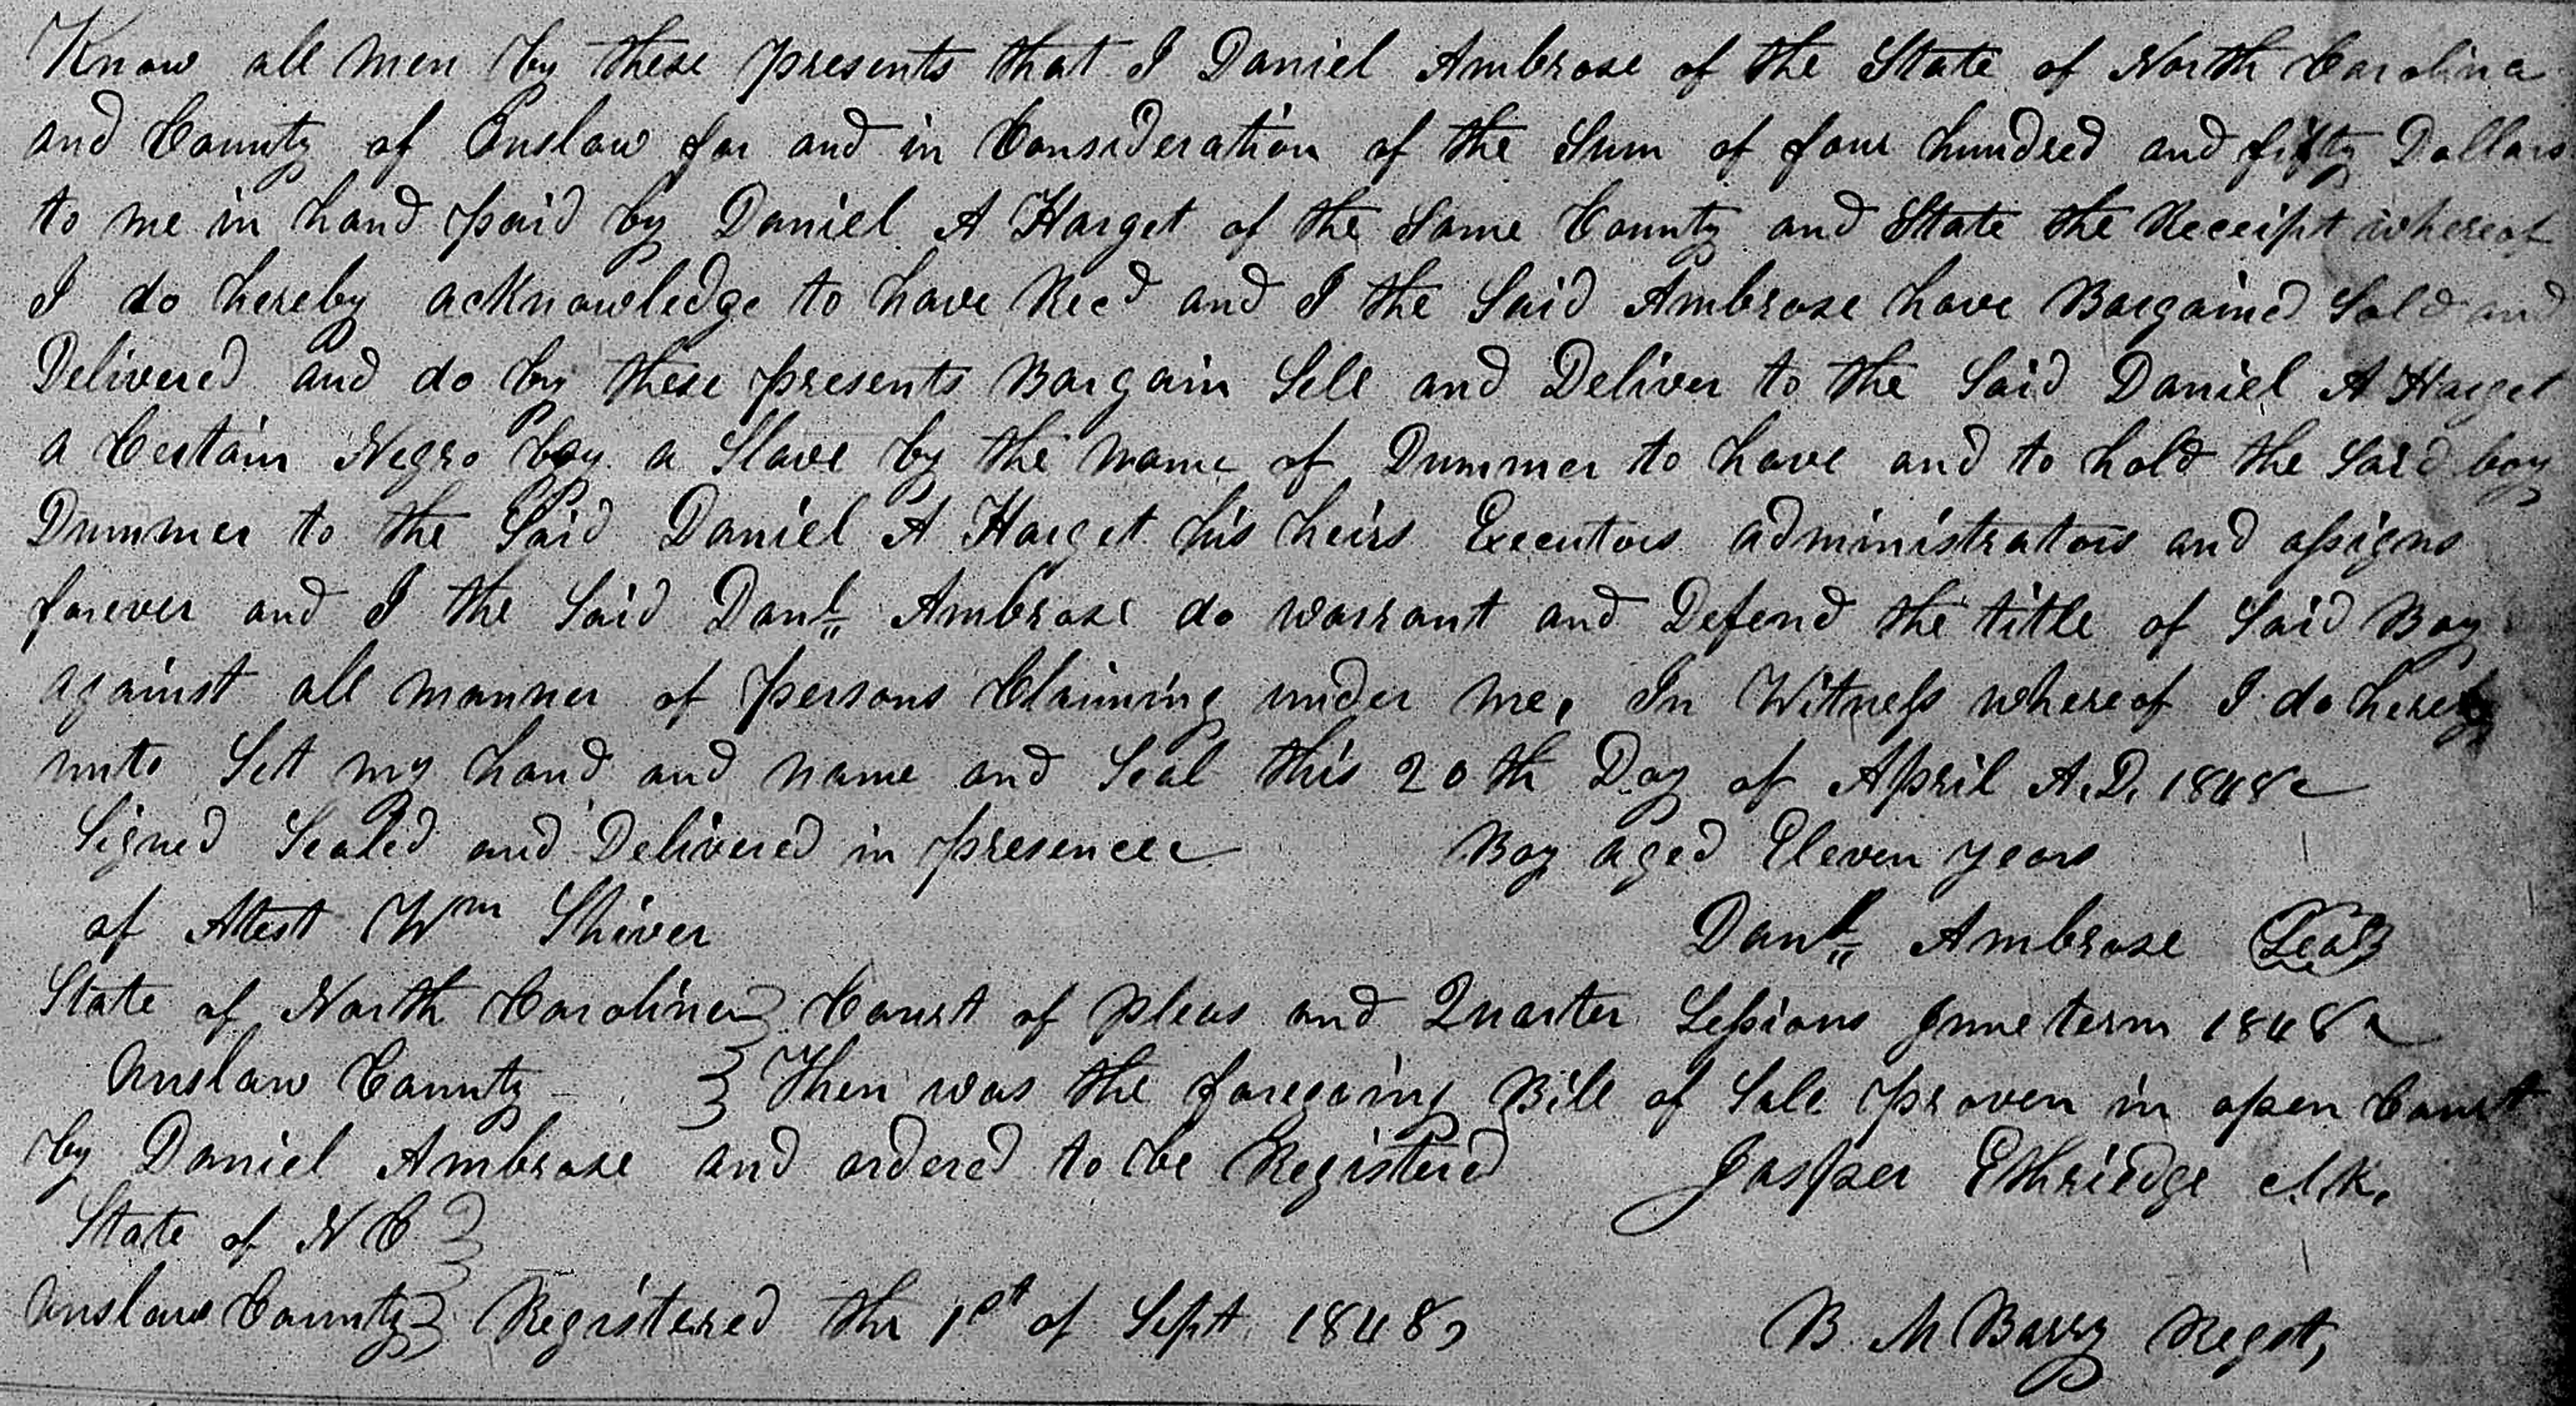 Know all men by these presents that I Daniel Ambrose of the State of North Carolina
and County of Onslow for and in Consideration of the Sum of four hundred and fifty Dollars
to me in hand paid by Daniel A Harget of the Same County and State the Receipt whereof
I do hereby acknowledge to have Recd and I the Said Ambrose have Bargained Sold and
Delivered and do by these presents Bargain Sell and Deliver to the Said Daniel A Harget
a Certain Negro boy a Slave by the name of Dummer to have and to hold the Said boy
Dummer to the Said Daniel A Harget his heirs Executors administrators and assigns
forever and I the Said Danl Ambrose do warrant and Defend the title of Said Boy
against all manner of persons Claiming under me, In Witness whereof I do hereby
unto Set my hand and name and Seal this 20th Day of April A.D. 1848
Signed Sealed and Delivered in presence Boy aged Eleven years
of Attest Wm Shiver Danl Ambrose Seal
State of North Carolina } Court of pleas and Quarter Sessions June term 1848
Onslow County } Then was the foregoing Bill of Sale proven in open Court
by Daniel Ambrose and ordered to be Registered Jasper Ethriedge Clk.
State of N C }
Onslow County } Registered the 1st of Sept 1848, B M Barry Regst,